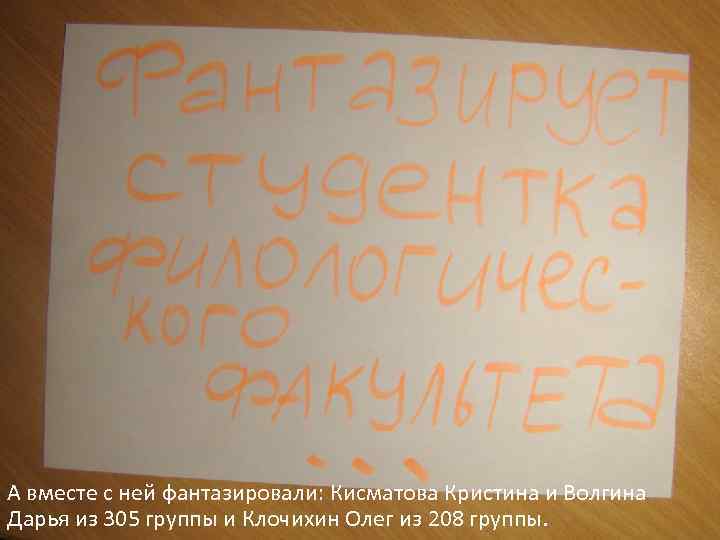 Фантазирует
студентка
филологичес-
кого
факультета
...
А вместе с ней фантазировали: Кисматова Кристина и Волгина
Дарья из 305 группы и Клочихин Олег из 208 группы.